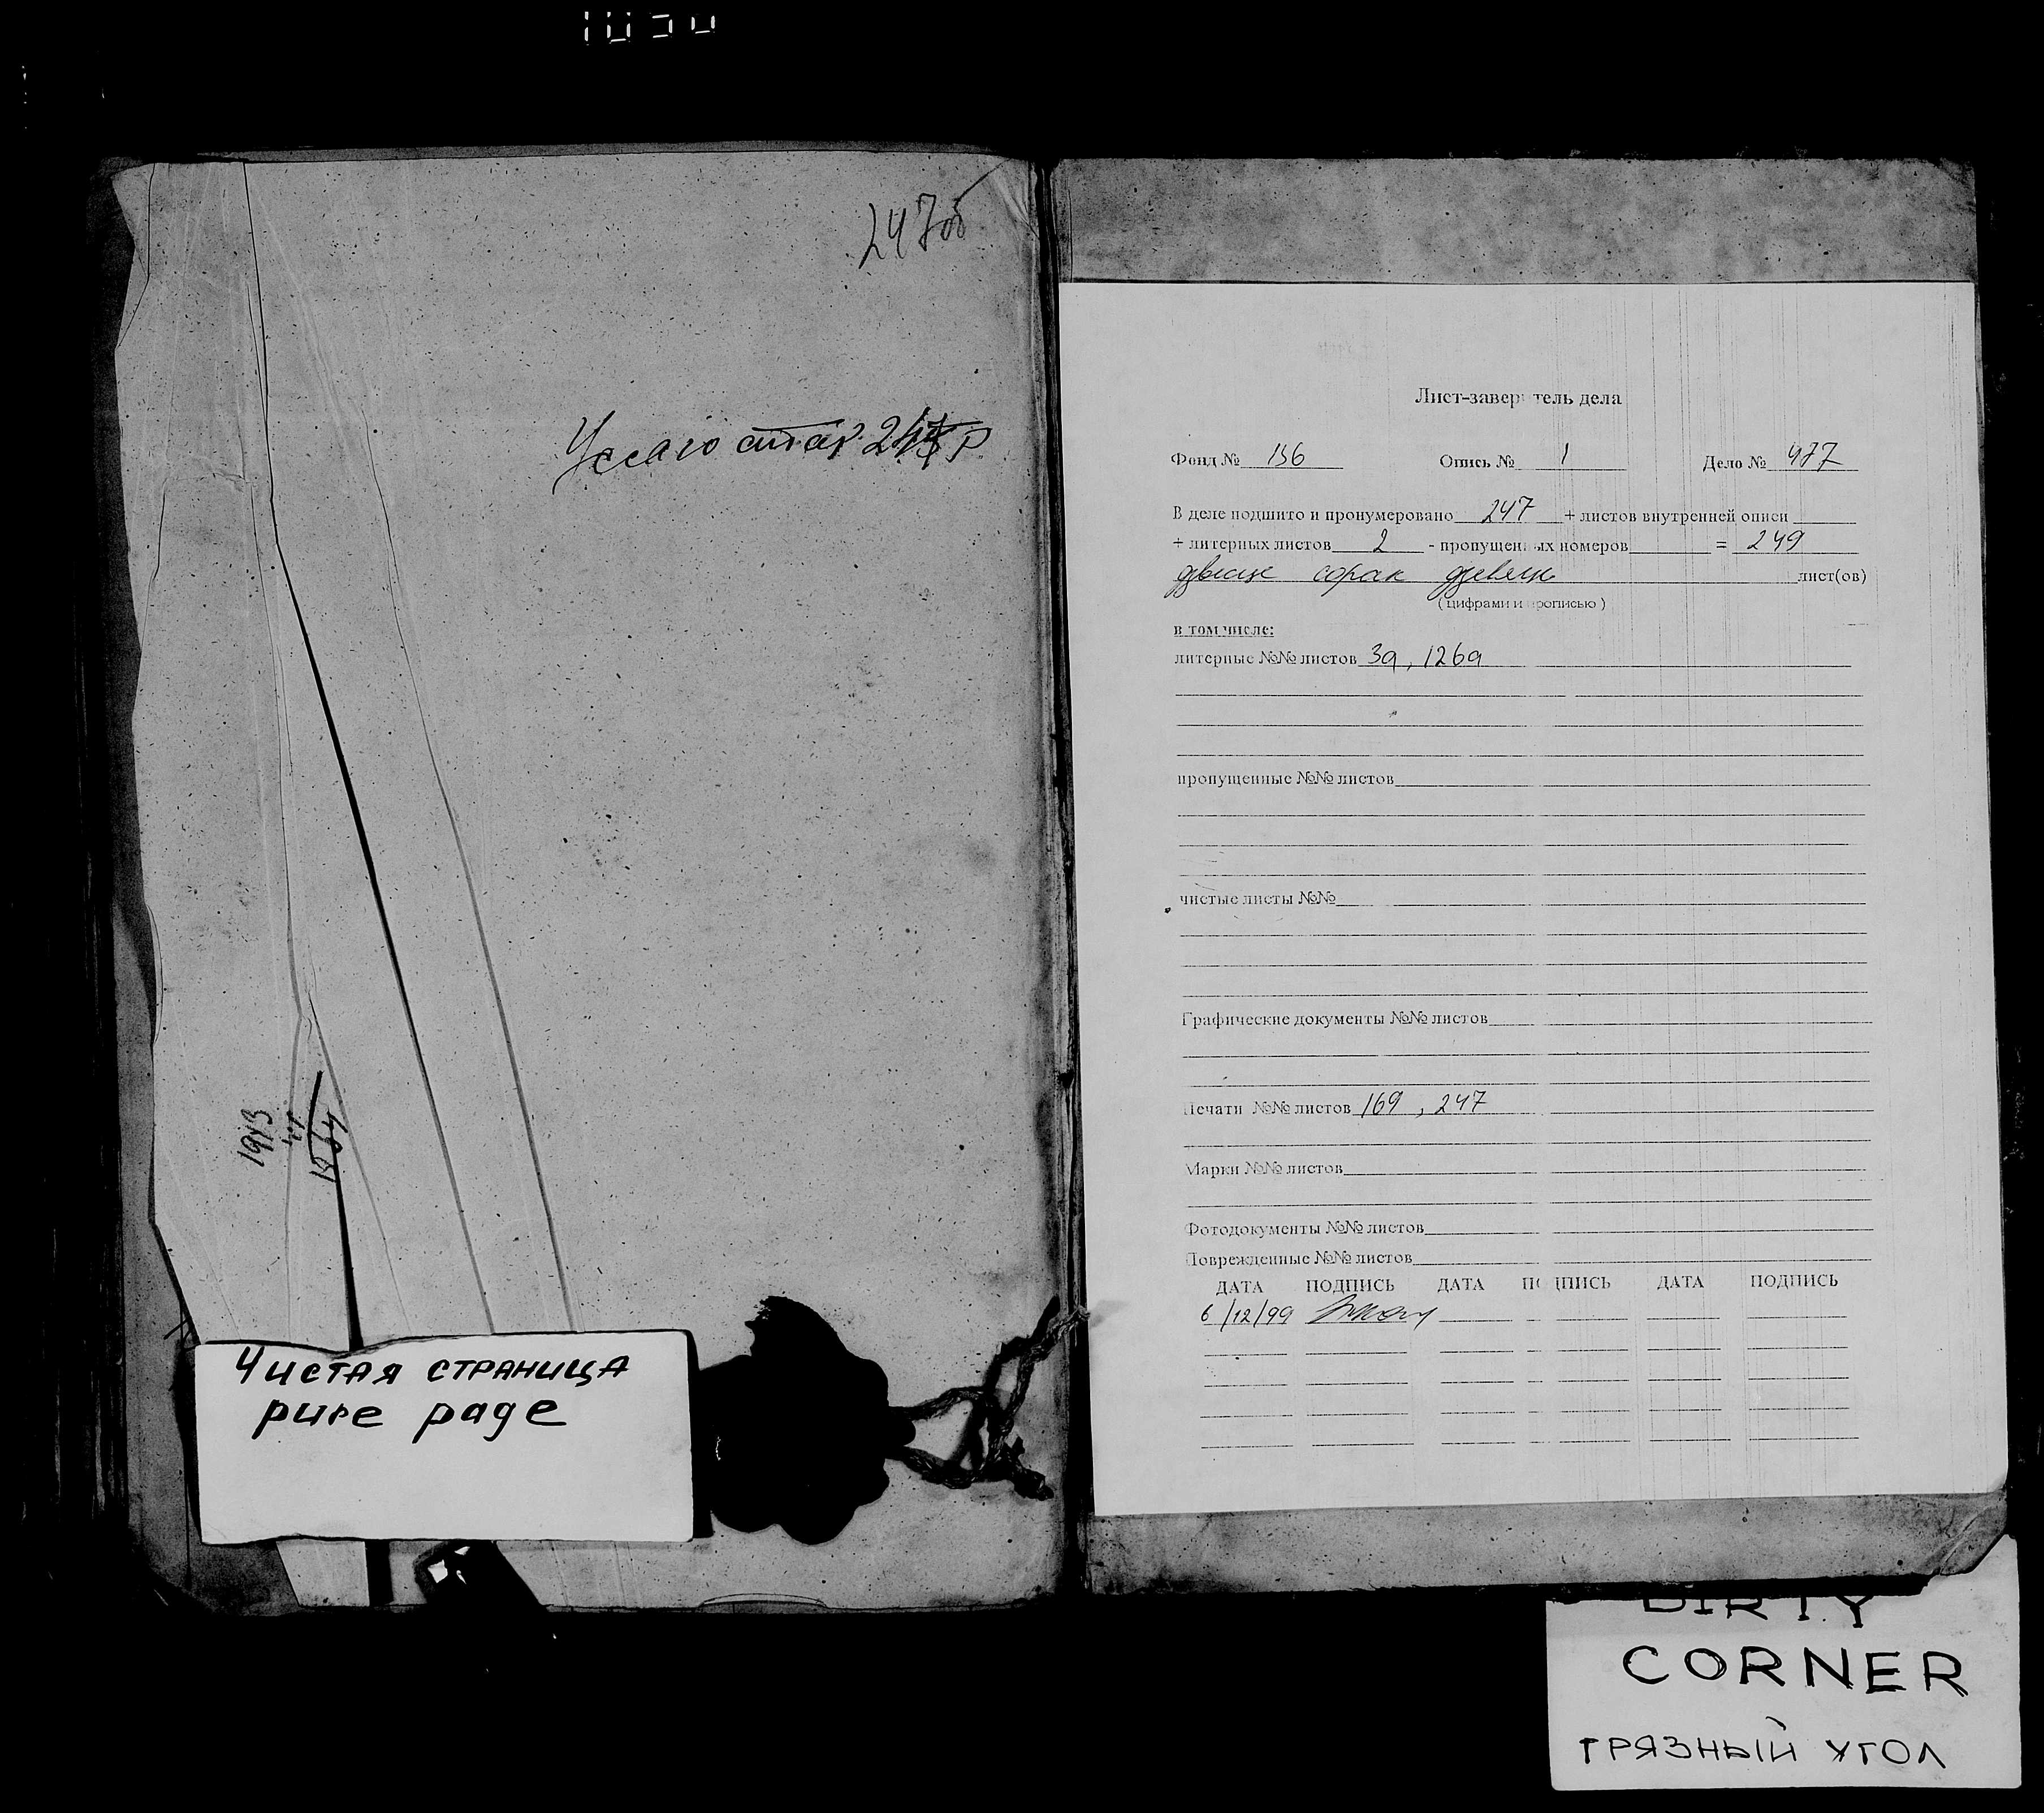 247об
1913
1904
Чистая страница
pure page
Лист-заверитель дела
Фонд № 156 Опись № 1 Дело № 477
В деле подшито и пронумеровано 247 + листов внутренней описи
+ литерных листов 2 - пропущенных номеров = 249
двести сорок девять лист(ов)
( цифрами и прописью )
в том числе:
литерные №№ листов 3а, 126а
пропущенные №№ листов
чистые листы №№
Графические документы №№ листов
Печати №№ листов 169, 247
Марки №№ листов
Фотодокументы №№ листов
Поврежденные №№ листов
ДАТА ПОДПИСЬ ДАТА ПОДПИСЬ ДАТА ПОДПИСЬ
6/12/99
DIRTY
CORNER
ГРЯЗНЫЙ УГОЛ